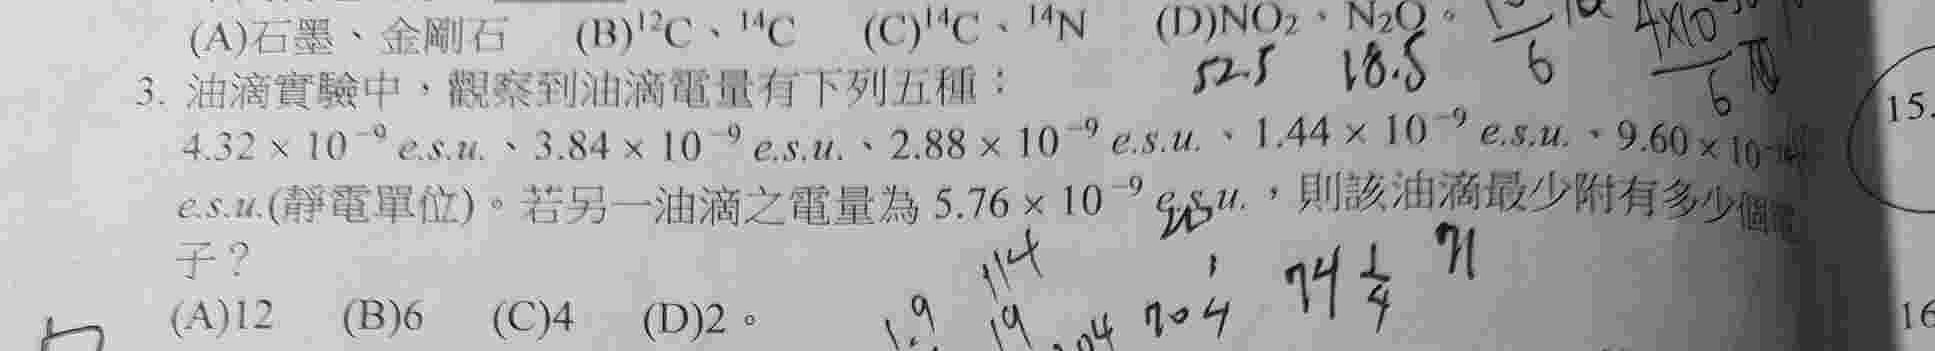 (A)石墨、金剛石 (B)¹²C、¹⁴C (C)¹⁴C、¹⁴N (D)NO₂、N₂O。
52.5 18.5 6 4×10 6
3. 油滴實驗中，觀察到油滴電量有下列五種：
15.
4.32 × 10⁻⁹ e.s.u.、3.84 × 10⁻⁹ e.s.u.、2.88 × 10⁻⁹ e.s.u.、1.44 × 10⁻⁹ e.s.u.、9.60 × 10
e.s.u.(靜電單位)。若另一油滴之電量為 5.76 × 10⁻⁹ e.s.u.，則該油滴最少附有多少個電
子？
114 74 1/4 71
(A)12 (B)6 (C)4 (D)2。
1.9 19 704
16